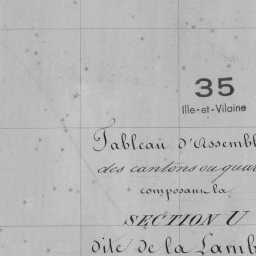 35
Ille-et-Vilaine
Tableau d'Assembl
des cantons ou quar
composant la
SECTION U
dite de la Lamb